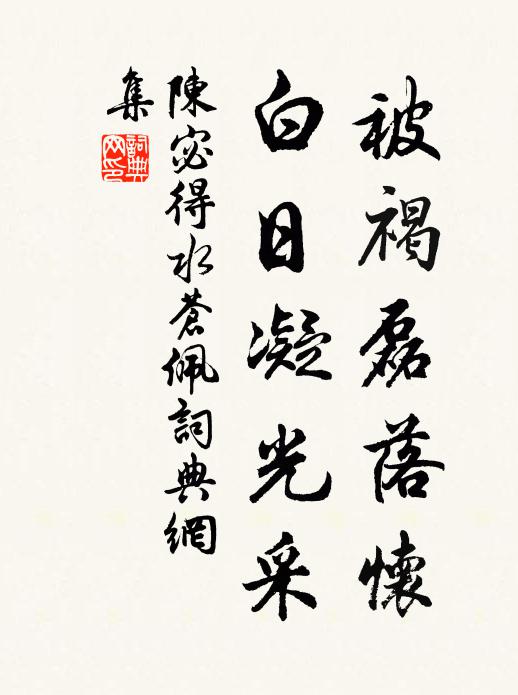 被褐磊落懷
白日凝光采
陳宓得水蒼佩詞典網
集
詞典
網印